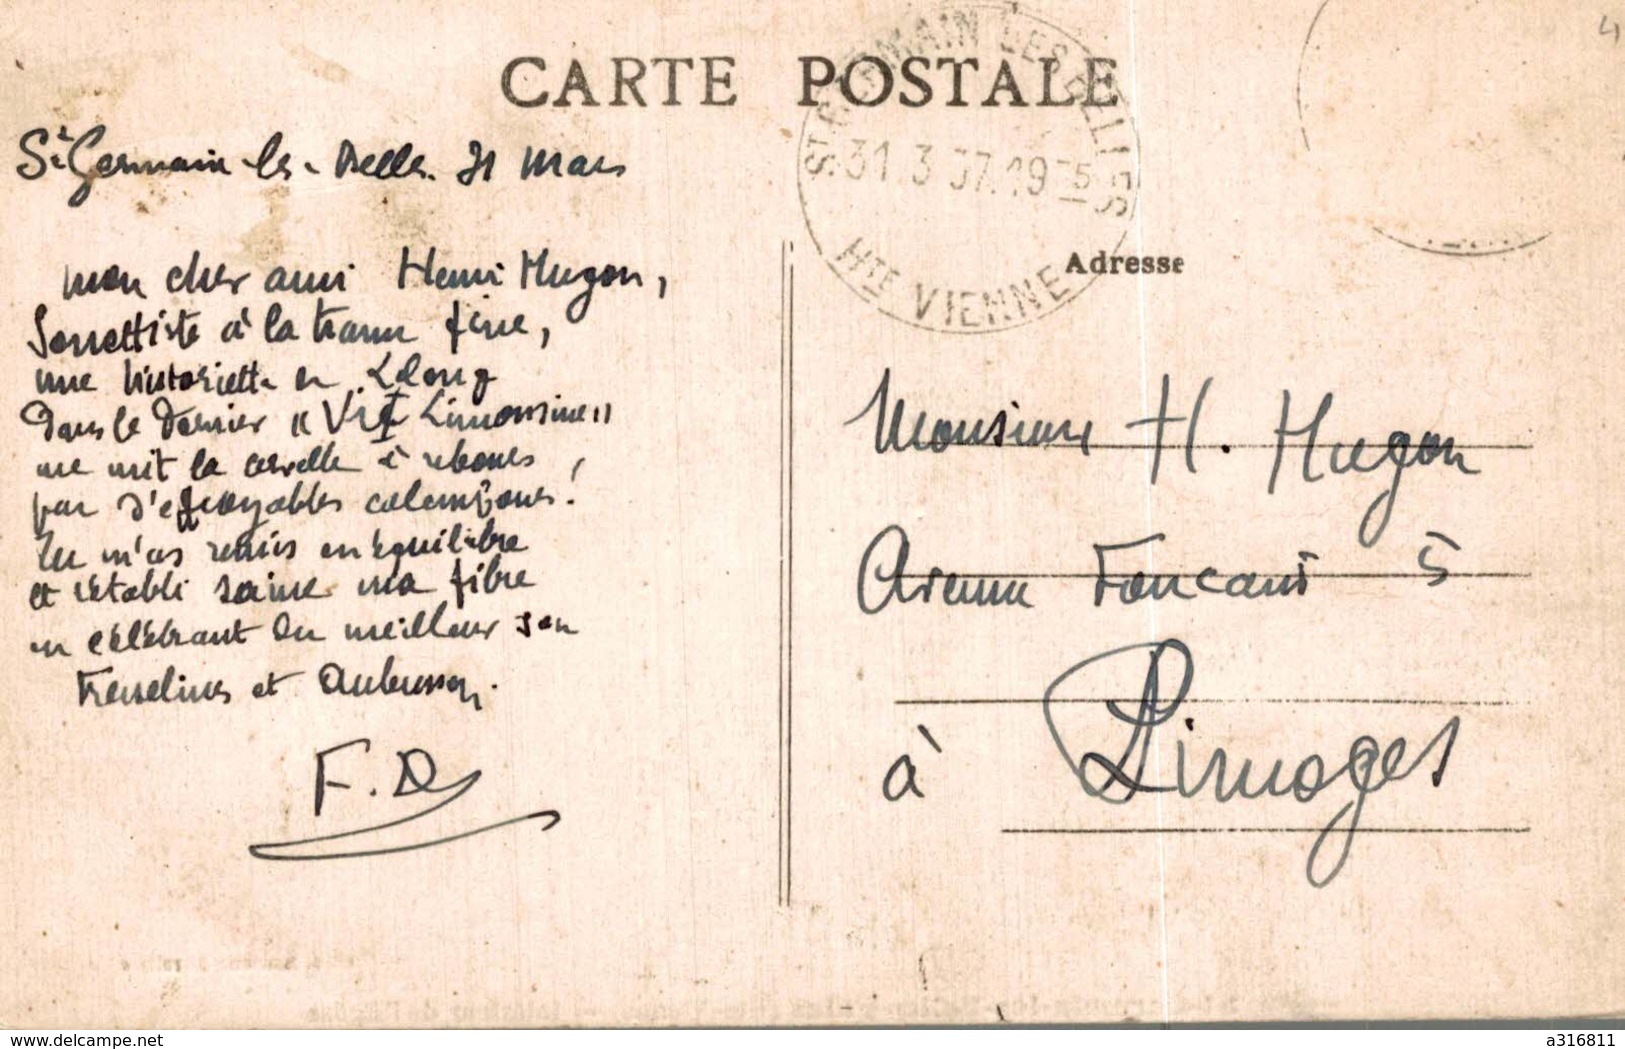 CARTE POSTALE
ST GERMAIN LES BELLES
31.3 37.19 15
HTE VIENNE
4
St Germain-les-Belles. 31 Mars
Mon cher ami Henri Hugon,
Sonnettiste à la trame fine,
une historiette en
Dans le dernier "Vie Limousine"
me mit la cervelle à rebours,
par d'effroyables calembours!
Tu m'as remis en équilibre
et rétabli saine ma fibre
en célébrant du meilleur son
Fresselines et Aubusson.
F.D
Adresse
Monsieur H. Hugon
Avenue Foucaud 5
à Limoges
www.delcampe.net
a316811